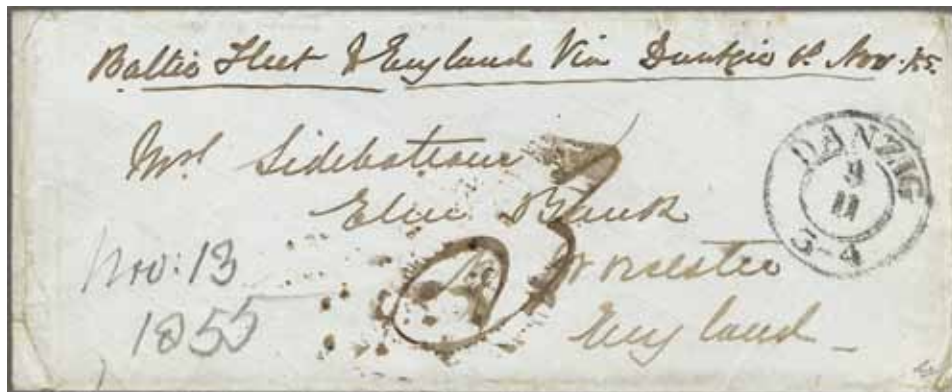 Baltic Fleet & England Via Dantzic 6. Nov. /55.
Mrs Sidebottom
Elm Bank
Nr Worcester
England
Nov: 13
1855
3
DANZIG
9
11
3-4